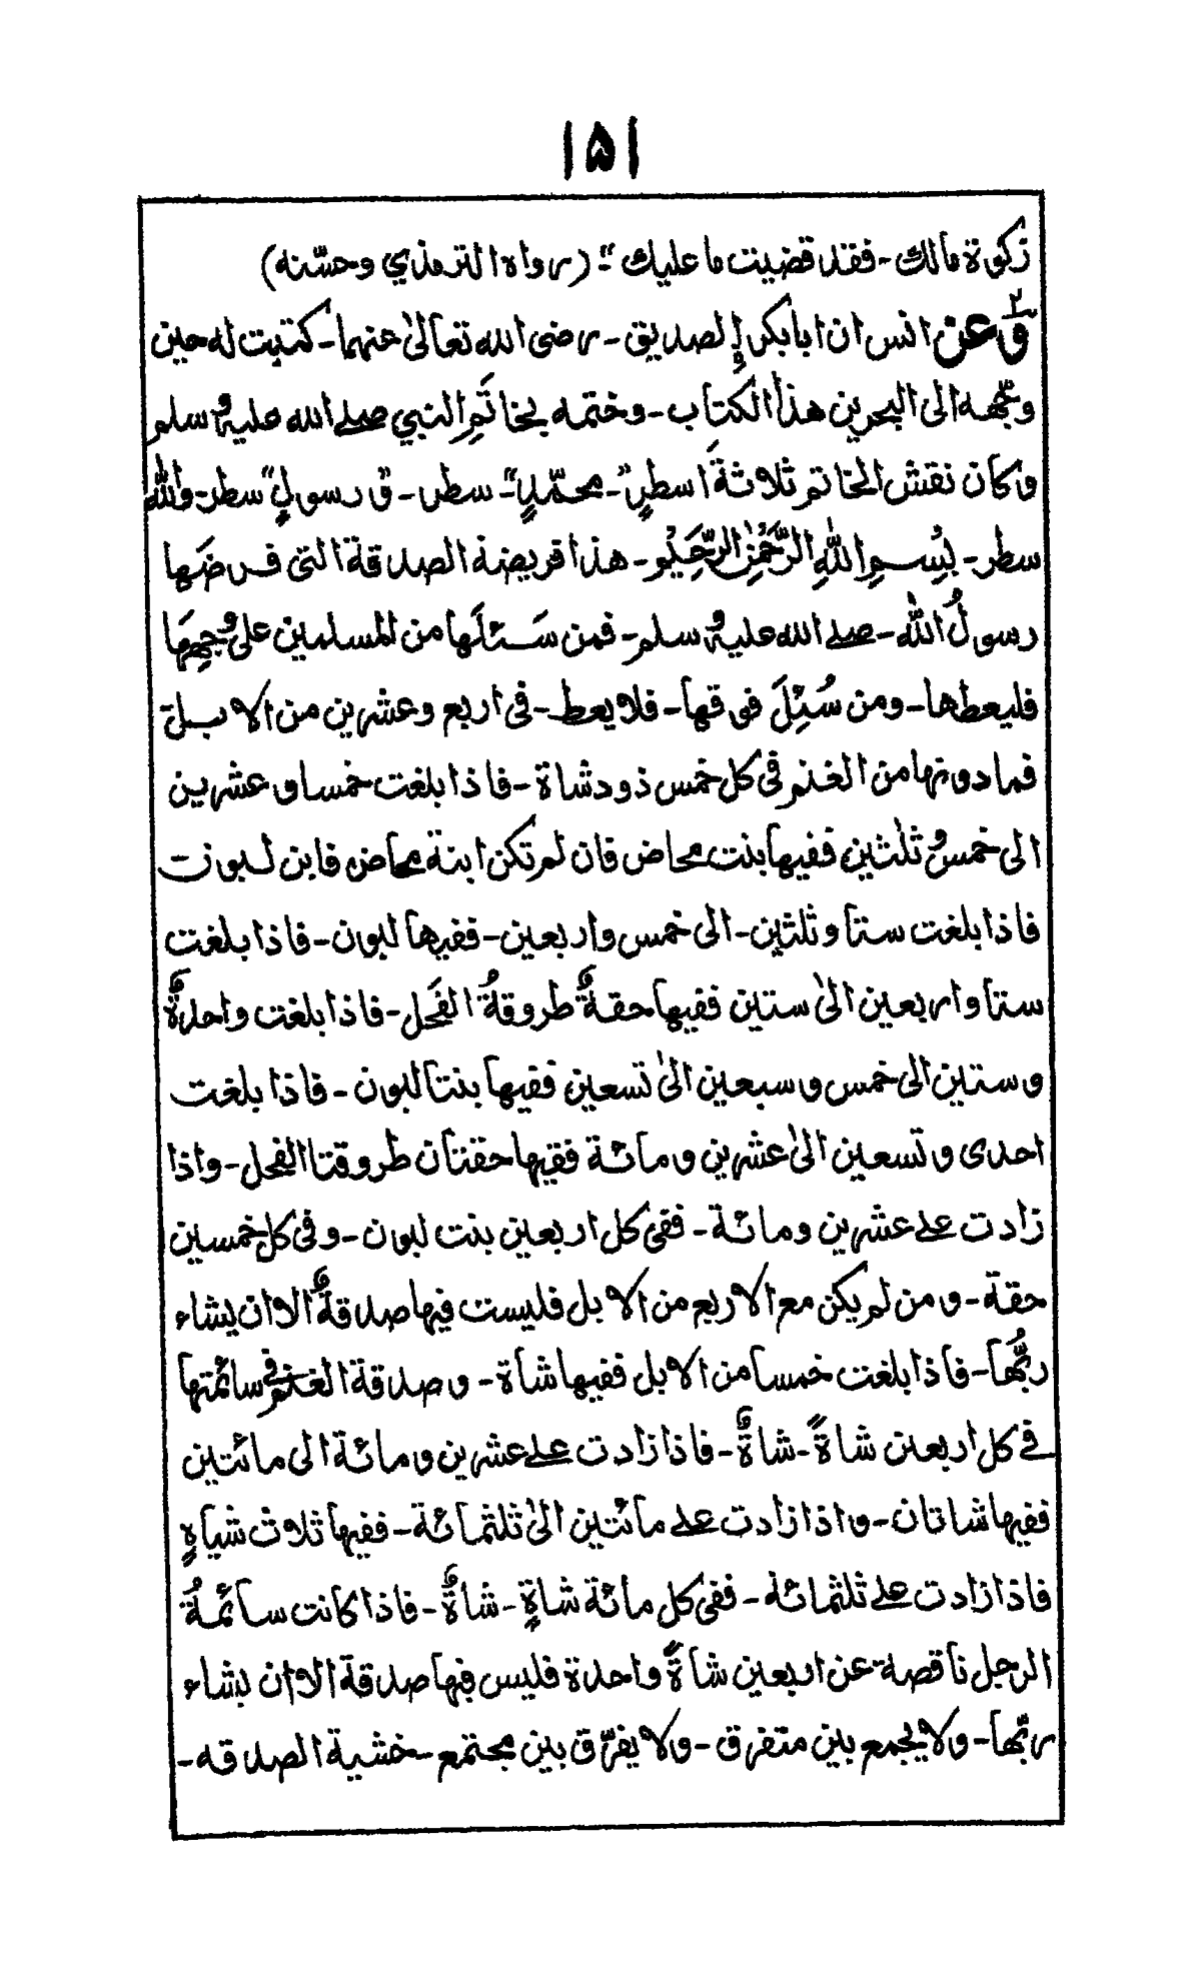 ۱۵۱
زكوة مالك - فقد قضيت ما عليك"؛ (رواه الترمذي وحسّنه)
وَّعن انس ان ابابكرٍ إلصديق - رضى الله تعالىٰ عنهما - كتبت له حين
وجّهه الى البحرين هذا الكتاب - وختمه بخاتَمِ النبي صلے الله عليه وسلم
وكان نقش الخاتم ثلاثةَ اسطرٍ" - محمّدٍ" - سطر - "و رسولٍ" سطر - والله
سطر - بِسْــمِ اللّٰهِ الرَّحْمٰنِ الرَّحِيْمِ - هذا فريضة الصدقة التى فرضَها
رسولُ اللّٰه - صلے الله عليه وسلم - فمن سَــئلَها من المسلمين علىٰ وجهِهَا
فليعطها - ومن سُئِلَ فوقها - فلا يعط - فى اربع وعشرين من الابل
فما دونها من الغنم فى كل خمس ذود شاة - فاذا بلغت خمسا و عشرين
الى خمس و ثلٰثين ففيها بنت محاض فان لم تكن ابنة محاض فابن لبون
فاذا بلغت ستا و ثلثين - الى خمس واربعين - ففيها لبون - فاذا بلغت
ستا واربعين الىٰ ستين ففيها حقةٌ طروقةُ الفَحل - فاذا بلغت واحدةٌ
و ستين الى خمس و سبعين الىٰ تسعين ففيها بنتا لبون - فاذا بلغت
احدى و تسعين الىٰ عشرين و مائة ففيها حقتان طروقتا الفحل - واذا
زادت علے عشرين ومائة - ففى كل اربعين بنت لبون - وفى كل خمسين
حقة - ومن لم يكن مع الاربع من الابل فليست فيها صدقةٌ الا ان يشاء
ربُّها - فاذا بلغت خمسا من الابل ففيها شاة - و صدقة الغنم فى سائمتها
فے كل اربعين شاةً - شاةٌ - فاذا زادت علے عشرين و مائة الى مائتين
ففيها شاتان - واذا زادت علے مائتين الىٰ ثلثمائة - ففيها ثلاث شياهٍ
فاذا زادت علے ثلثمائة - ففى كل مائة شاةٍ - شاةٌ - فاذا كانت سائمةُ
الرجل ناقصة عن اربعين شاةً واحدة فليس فيها صدقة الا ان يشاء
ربّها - ولا يجمع بين متفرق - ولا يفرّق بين مجتمع - خشية الصدقه -